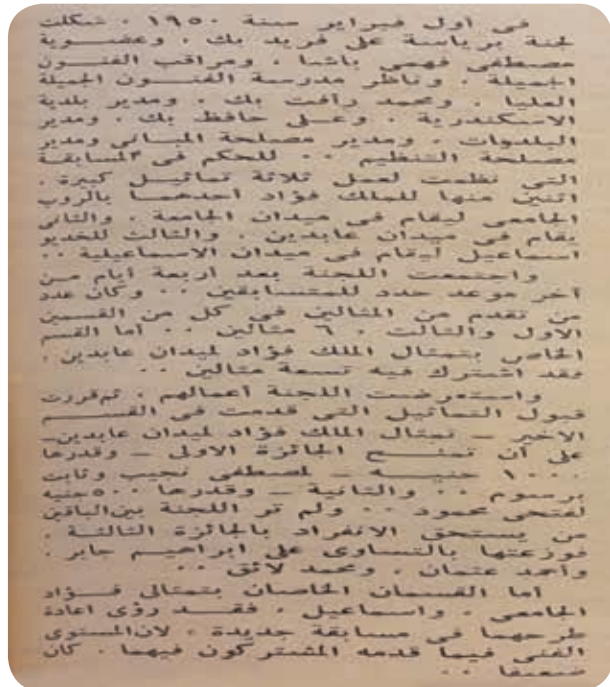 فى أول فبراير سنة ١٩٥٠ . شكلت
لجنة برياسة على فريد بك . وعضوية
مصطفى فهمى باشا . ومراقب الفنون
الجميلة . وناظر مدرسة الفنون الجميلة
العليا . ومحمد رأفت بك . ومدير بلدية
الاسكندرية . وعلى حافظ بك . ومدير
البلديات . ومدير مصلحة المبانى ومدير
مصلحة التنظيم .. للحكم فى المسابقة
التى نظمت لعمل ثلاثة تماثيل كبيرة .
اثنين منها للملك فؤاد أحدهما بالروب
الجامعى ليقام فى ميدان الجامعة . والثانى
يقام فى ميدان عابدين . والثالث للخديو
اسماعيل ليقام فى ميدان الاسماعيلية ..
واجتمعت اللجنة بعد أربعة أيام من
آخر موعد حدد للمتسابقين .. وكان عدد
من تقدم من المثالين فى كل من القسمين
الأول والثالث . ٦ مثالين .. أما القسم
الخاص بتمثال الملك فؤاد لميدان عابدين .
فقد اشترك فيه تسعة مثالين ..
واستعرضت اللجنة أعمالهم . ثم قررت
قبول التماثيل التى قدمت فى القسم
الأخير ــ تمثال الملك فؤاد لميدان عابدين ــ
على أن تمنح الجائزة الأولى ــ وقدرها
١٠٠٠ جنيه ــ لمصطفى نجيب وثابت
برسوم .. والثانية ــ وقدرها ٥٠٠ جنيه
لفتحى محمود .. ولم تر اللجنة بين الباقين
من يستحق الانفراد بالجائزة الثالثة .
فوزعتها بالتساوى على ابراهيم جابر .
وأحمد عثمان . ومحمد لائق ..
أما القسمان الخاصان بتمثالى فؤاد
الجامعى . واسماعيل . فقد رؤى اعادة
طرحهما فى مسابقة جديدة . لأن المستوى
الفنى فيما قدمه المشتركون فيهما . كان
ضعيفا ..